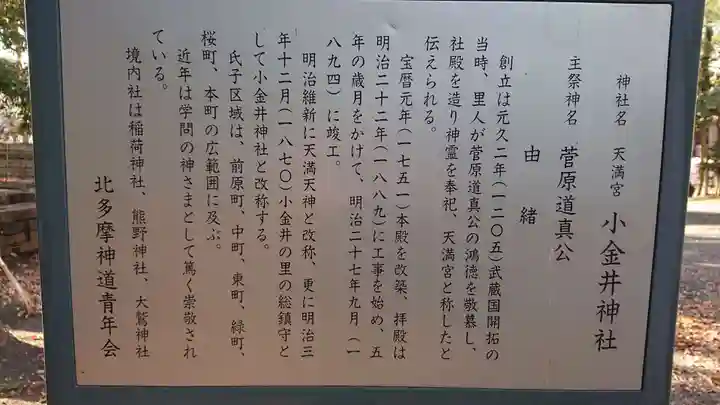 神社名 天満宮 小金井神社
主祭神名 菅原道真公
由緒
創立は元久二年(一二〇五)武蔵国開拓の
当時、里人が菅原道真公の鴻徳を敬慕し、
社殿を造り神霊を奉祀、天満宮と称したと
伝えられる。
宝暦元年(一七五一)本殿を改築、拝殿は
明治二十二年(一八八九)に工事を始め、五
年の歳月をかけて、明治二十七年九月(一
八九四)に竣工。
明治維新に天満天神と改称、更に明治三
年十二月(一八七〇)小金井の里の総鎮守と
して小金井神社と改称する。
氏子区域は、前原町、中町、東町、緑町、
桜町、本町の広範囲に及ぶ。
近年は学問の神さまとして篤く崇敬され
ている。
境内社は稲荷神社、熊野神社、大鷲神社
北多摩神道青年会